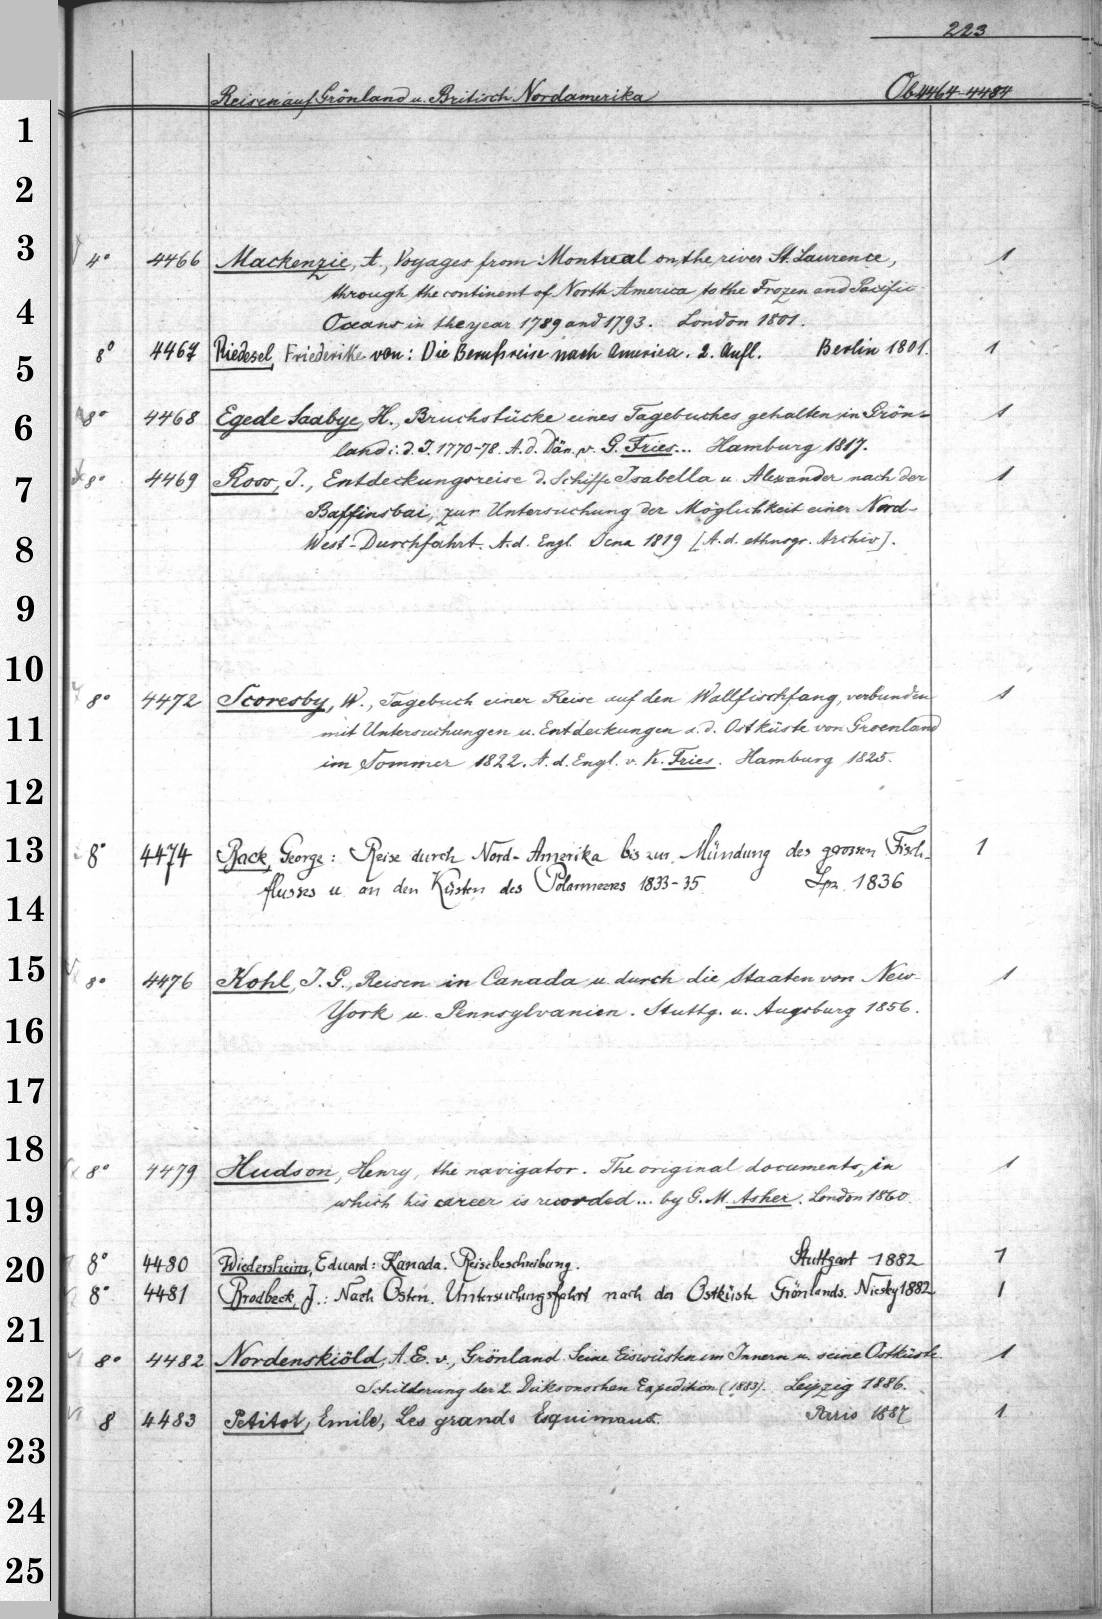 223
Reisen auf Grönland u. Britisch Nordamerika Ob 4464-4484
1
2
3
4° 4466 Mackenzie, A., Voyages from Montreal on the river St. Laurence, 1
through the continent of North America to the Frozen and Pacific
4
Oceans in the year 1789 and 1793. London 1801.
5
8° 4467 Riedesel, Friederike von: Die Berufsreise nach America. 2. Aufl. Berlin 1801. 1
6
8° 4468 Egede Saabye, H., Bruchstücke eines Tagebuches gehalten in Grön- 1
land i. d. J. 1770-78. A. d. Dän. v. G. Fries... Hamburg 1817.
7
8° 4469 Ross, J., Entdeckungsreise d. Schiffe Isabella u. Alexander nach der 1
Baffinsbai, zur Untersuchung der Möglichkeit einer Nord-
8
West-Durchfahrt. A. d. Engl. Jena 1819 [A. d. ethnogr. Archiv].
9
10
8° 4472 Scoresby, W., Tagebuch einer Reise auf den Wallfischfang, verbunden 1
11
mit Untersuchungen u. Entdeckungen a. d. Ostküste von Groenland
im Sommer 1822. A. d. Engl. v. K. Fries. Hamburg 1825.
12
13
8° 4474 Back, George: Reise durch Nord-Amerika bis zur Mündung des grossen Fisch- 1
flusses u. an den Küsten des Polarmeeres 1833-35 Lpz. 1836
14
15
8° 4476 Kohl, J. G., Reisen in Canada u. durch die Staaten von New- 1
York u. Pennsylvanien. Stuttg. u. Augsburg 1856.
16
17
18
8° 4479 Hudson, Henry, the navigator. The original documents, in 1
which his career is recorded... by G. M. Asher. London 1860.
19
20
8° 4480 Wiedersheim, Eduard: Kanada. Reisebeschreibung. Stuttgart 1882 1
8° 4481 Brodbeck, J.: Nach Osten. Untersuchungsfahrt nach der Ostküste Grönlands. Niesky 1882 1
21
8° 4482 Nordenskiöld, A. E. v., Grönland. Seine Eiswüsten im Innern u. seine Ostküste. 1
22
Schilderung der 2. Dicksonschen Expedition (1883). Leipzig 1886.
8 4483 Petitot, Emile, Les grands Esquimaux. Paris 1887 1
23
24
25